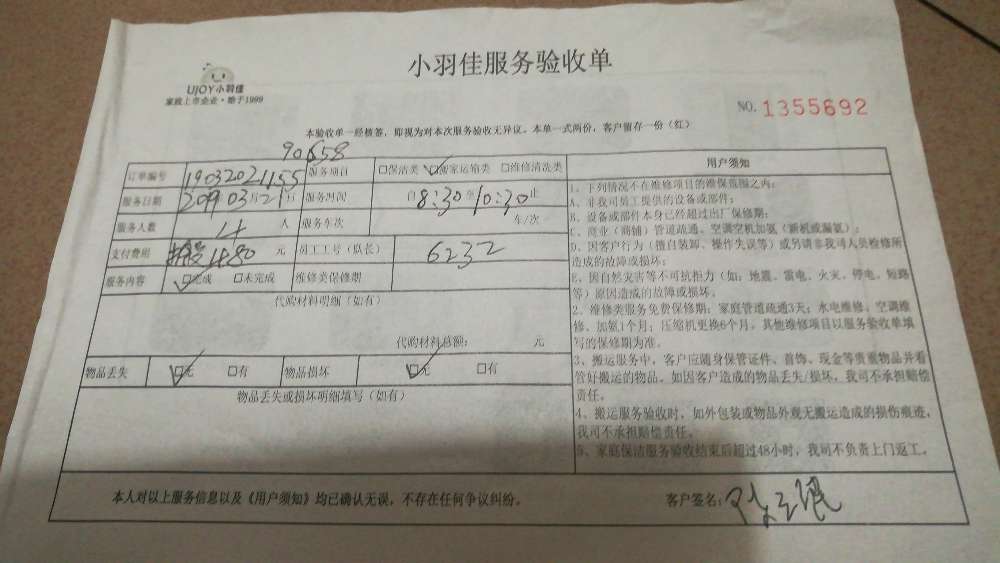 小羽佳服务验收单
UJOY小羽佳
家政上市企业·始于1999
NO. 1355692
本验收单一经核签，即视为对本次服务验收无异议。本单一式两份，客户留存一份（红）
90658
订单编号 19032021155 服务项目 □保洁类 ☑搬家运输类 □维修清洗类
服务日期 2019年03月21日 服务时间 自8:30至10:30止
服务人数 4 人 服务车次 车/次
支付费用 1480 元 员工工号（队长） 6232
服务内容 ☑完成 □未完成 维修类保修期
代购材料明细（如有）
代购材料总额： 元
物品丢失 ☑无 □有 物品损坏 ☑无 □有
物品丢失或损坏明细填写（如有）
用户须知
1、下列情况不在维修项目的维保范围之内：
A、非我司员工提供的设备或部件；
B、设备或部件本身已经超过出厂保修期；
C、商业（商铺）管道疏通、空调空机加氨（新机或漏氨）；
D、因客户行为（擅自装卸、操作失误等）或另请非我司人员检修所
造成的故障或损坏；
E、因自然灾害等不可抗拒力（如：地震、雷电、火灾、停电、短路
等）原因造成的故障或损坏。
2、维修类服务免费保修期：家庭管道疏通3天；水电维修、空调维
修、加氨1个月；压缩机更换6个月，其他维修项目以服务验收单填
写的保修期为准。
3、搬运服务中，客户应随身保管证件、首饰、现金等贵重物品并看
管好搬运的物品。如因客户造成的物品丢失/损坏，我司不承担赔偿
责任。
4、搬运服务验收时，如外包装或物品外观无搬运造成的损伤痕迹，
我司不承担赔偿责任。
5、家庭保洁服务验收结束后超过48小时，我司不负责上门返工。
本人对以上服务信息以及《用户须知》均已确认无误，不存在任何争议纠纷。 客户签名：